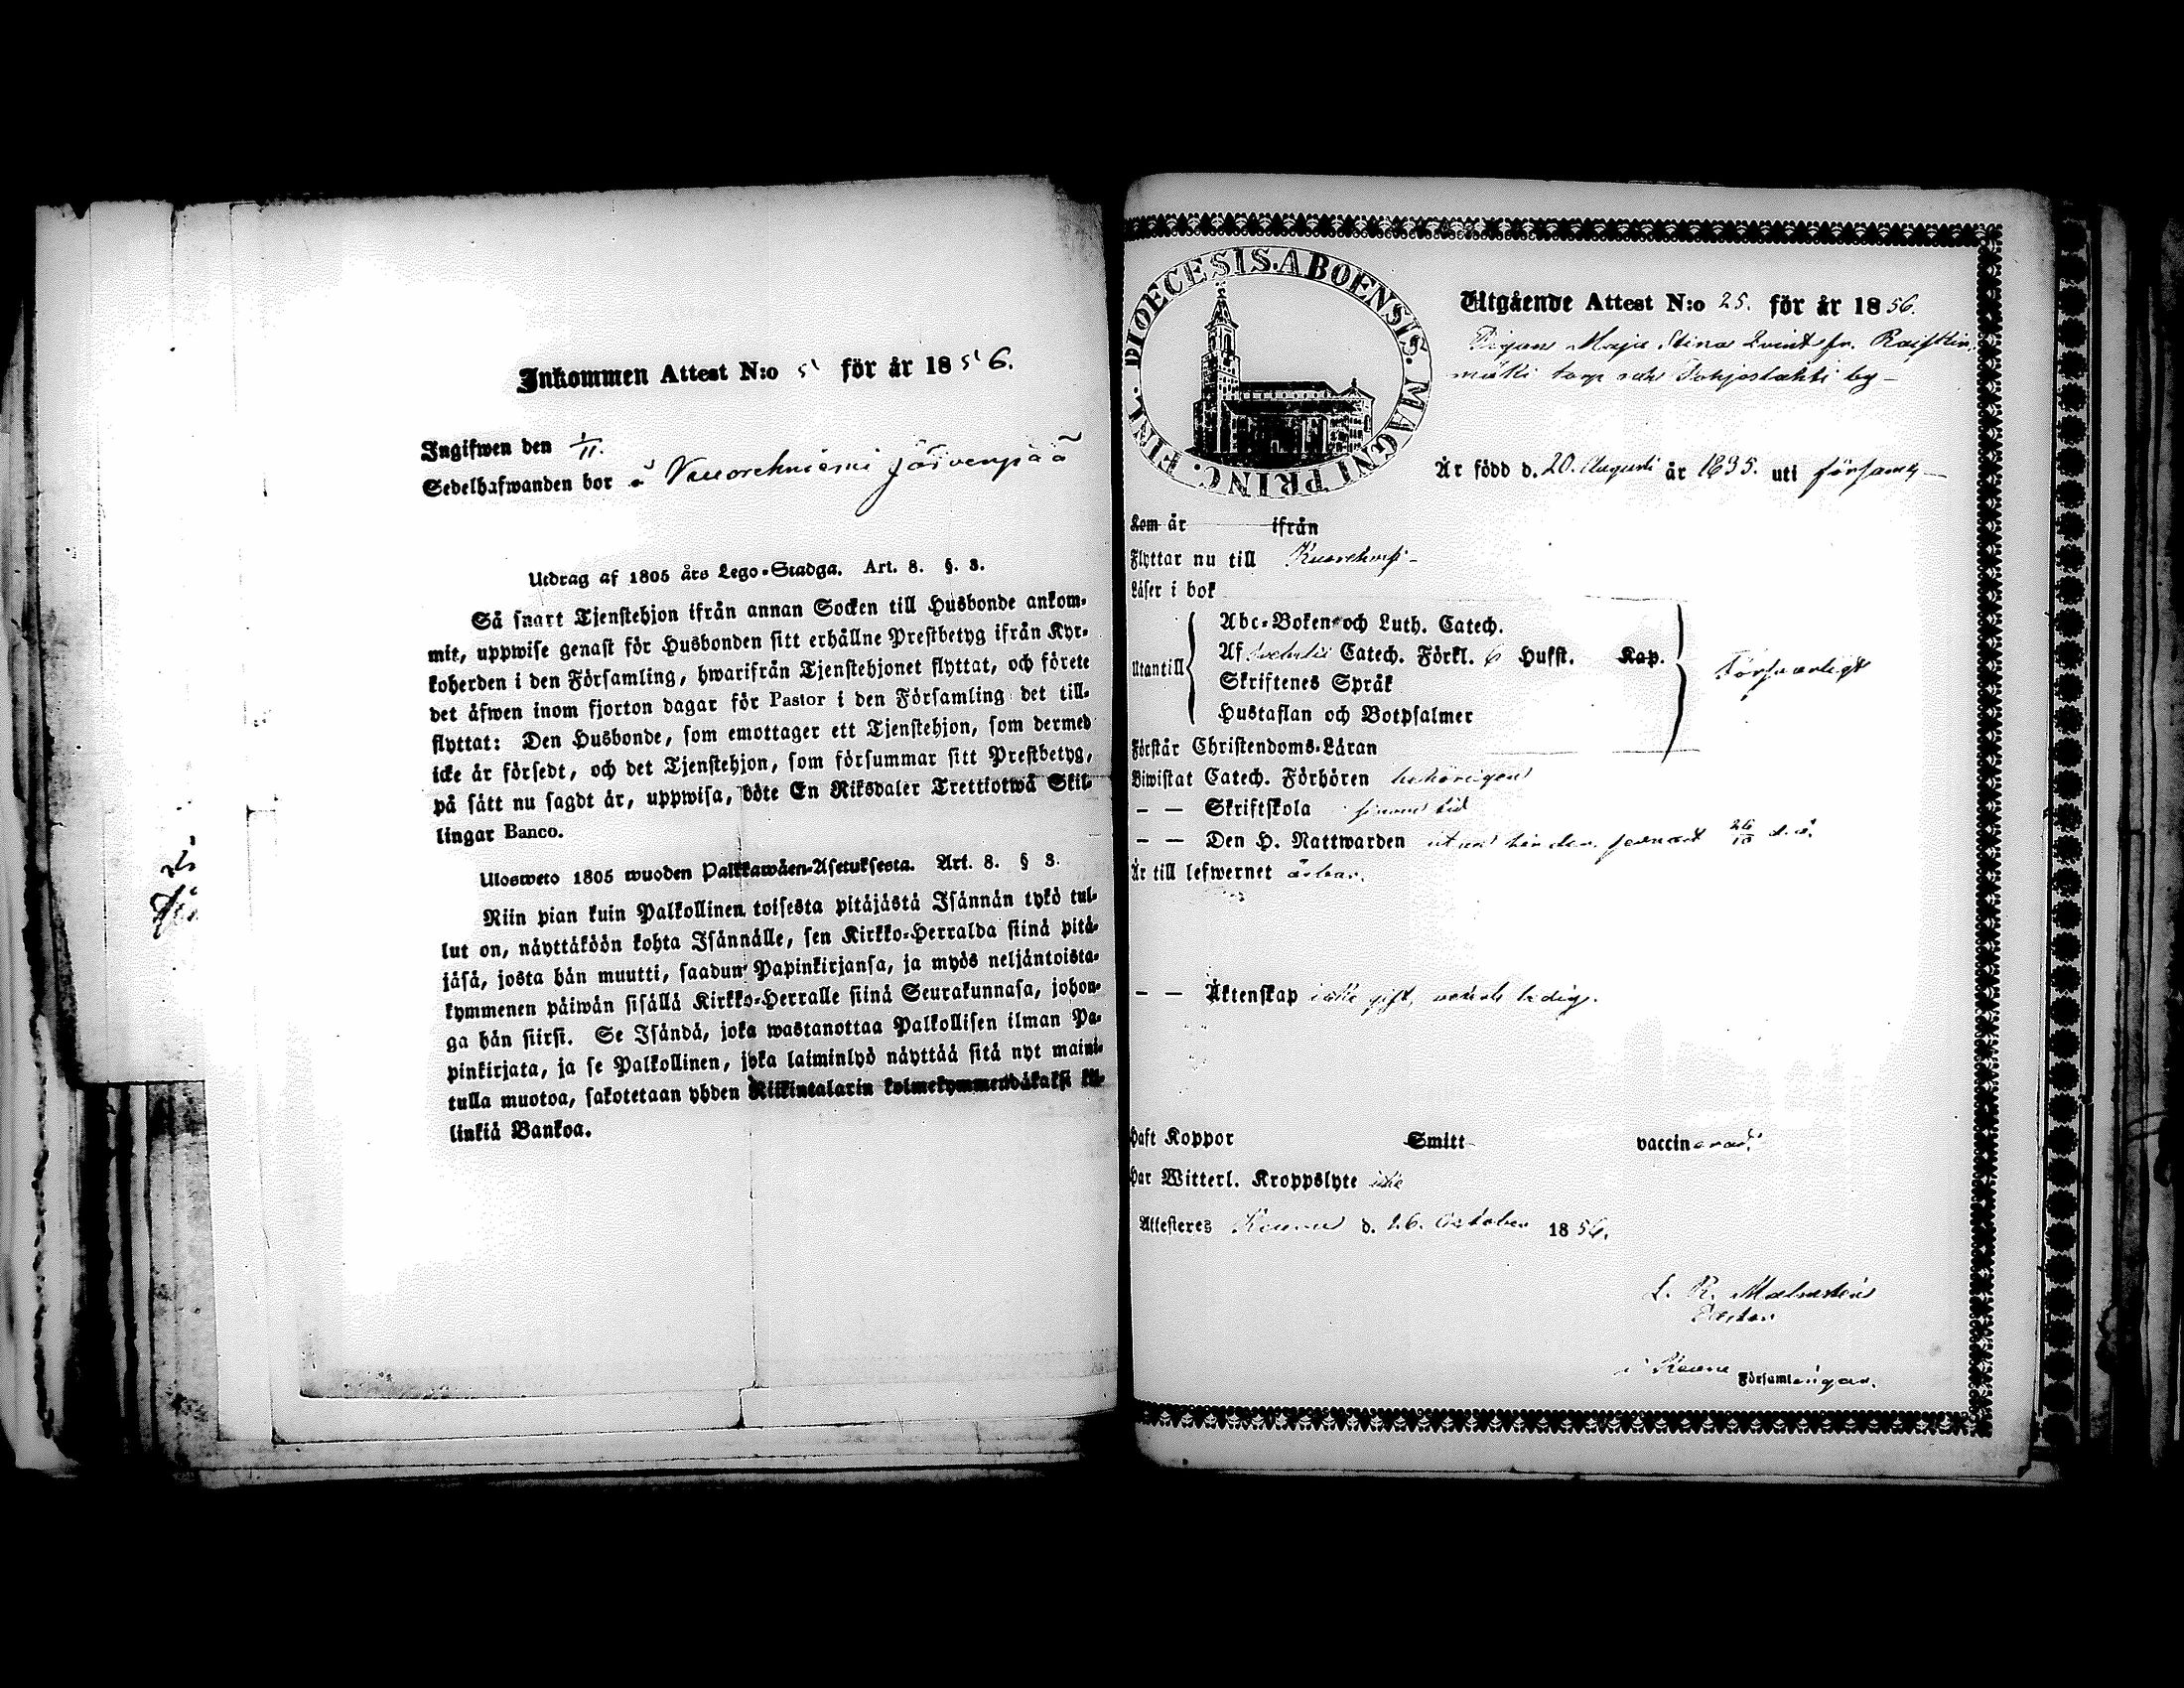 Inkommen Attest N:o 5 för år 1856.
Ingifwen den 1/11.
Sedelhafwanden bor å Vuorehniemi Järvenpää
Utdrag af 1805 års Lego-Stadga. Art. 8. §. 3.
Så snart Tjenstehjon ifrån annan Socken till Husbonde ankom-
mit, uppwise genast för Husbonden sitt erhållne Prestbetyg ifrån Kyr-
koherden i den Församling, hwarifrån Tjenstehjonet flyttat, och förete
det äfwen inom fjorton dagar för Pastor i den Församling det till-
flyttat: Den Husbonde, som emottager ett Tjenstehjon, som dermed
icke är försedt, och det Tjenstehjon, som försummar sitt Prestbetyg,
på sätt nu sagdt är, uppwisa, böte En Riksdaler Trettiotwå Skil-
lingar Banco.
Ulosweto 1805 wuoden Palkkawäen-Asetuksesta. Art. 8. § 3.
Niin pian kuin Palkollinen toisesta pitäjästä Isännän tykö tul-
lut on, näyttäköön kohta Isännälle, sen Kirkko-Herralda siinä pitä-
jäsä, josta hän muutti, saadun Papinkirjansa, ja myös neljäntoista-
kymmenen päiwän sisällä Kirkko-Herralle siinä Seurakunnasa, johon-
ga hän siirsi. Se Isändä, joka wastanottaa Palkollisen ilman Pa-
pinkirjata, ja se Palkollinen, joka laiminlyö näyttää sitä nyt maini-
tulla muotoa, sakotetaan yhden Riikintalarin kolmekymmendäkaksi kil-
linkiä Bankoa.
DIOECESIS. ABOENSIS. MAGNI PRINC. FINL.
Utgående Attest N:o 25. för år 1856.
Pigan Maja Stina Qvint fr.
mäki torp och Pohjoslahti by
Är född d. 20. Augusti år 1835. uti förs
Kom år ifrån
Flyttar nu till Kuorehvesi
Läser i bok
Abc-Boken och Luth. Catech.
Utantill Af Svebelii Catech. Förkl. 6 Hufst. Kap. Försvarligt
Skriftenes Språk
Hustaflan och Botpsalmer
Förstår Christendoms-Läran
Biwistat Catech. Förhören behörigen
— — Skriftskola
— — Den H. Nattwarden utan hinder, senast 26/10 d. å.
Är till lefwernet ärbar.
— — Äktenskap icke gift, ledig.
Haft Koppor Smitt vaccinerad.
Har Witterl. Kroppslyte icke
Attesteres d. 26. October 1856.
L. R.
Pastor
i Församlingar.